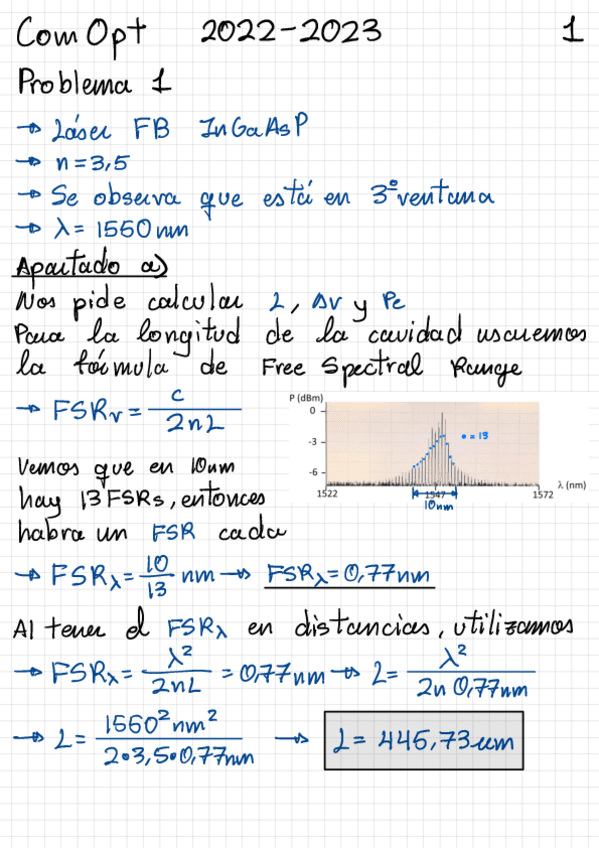 Com Opt 2022-2023 1
Problema 1
→ Láser FB InGaAsP
→ n=3,5
→ Se observa que está en 3ª ventana
→ λ= 1550nm
Apartado a)
Nos pide calcular L, Δν y Pe
Para la longitud de la cavidad usaremos
la fórmula de Free Spectral Range
→ FSRν = c / 2nL
P (dBm)
0
-3
-6
• = 13
1522 1547 1572 λ (nm)
10nm
Vemos que en 10nm
hay 13 FSRs, entonces
habra un FSR cada
→ FSRλ = 10/13 nm → FSRλ = 0,77nm
Al tener el FSRλ en distancias, utilizamos
→ FSRλ = λ² / 2nL = 0,77nm → L = λ² / 2n 0,77nm
→ L = 1550² nm² / 2•3,5•0,77nm → L = 445,73um